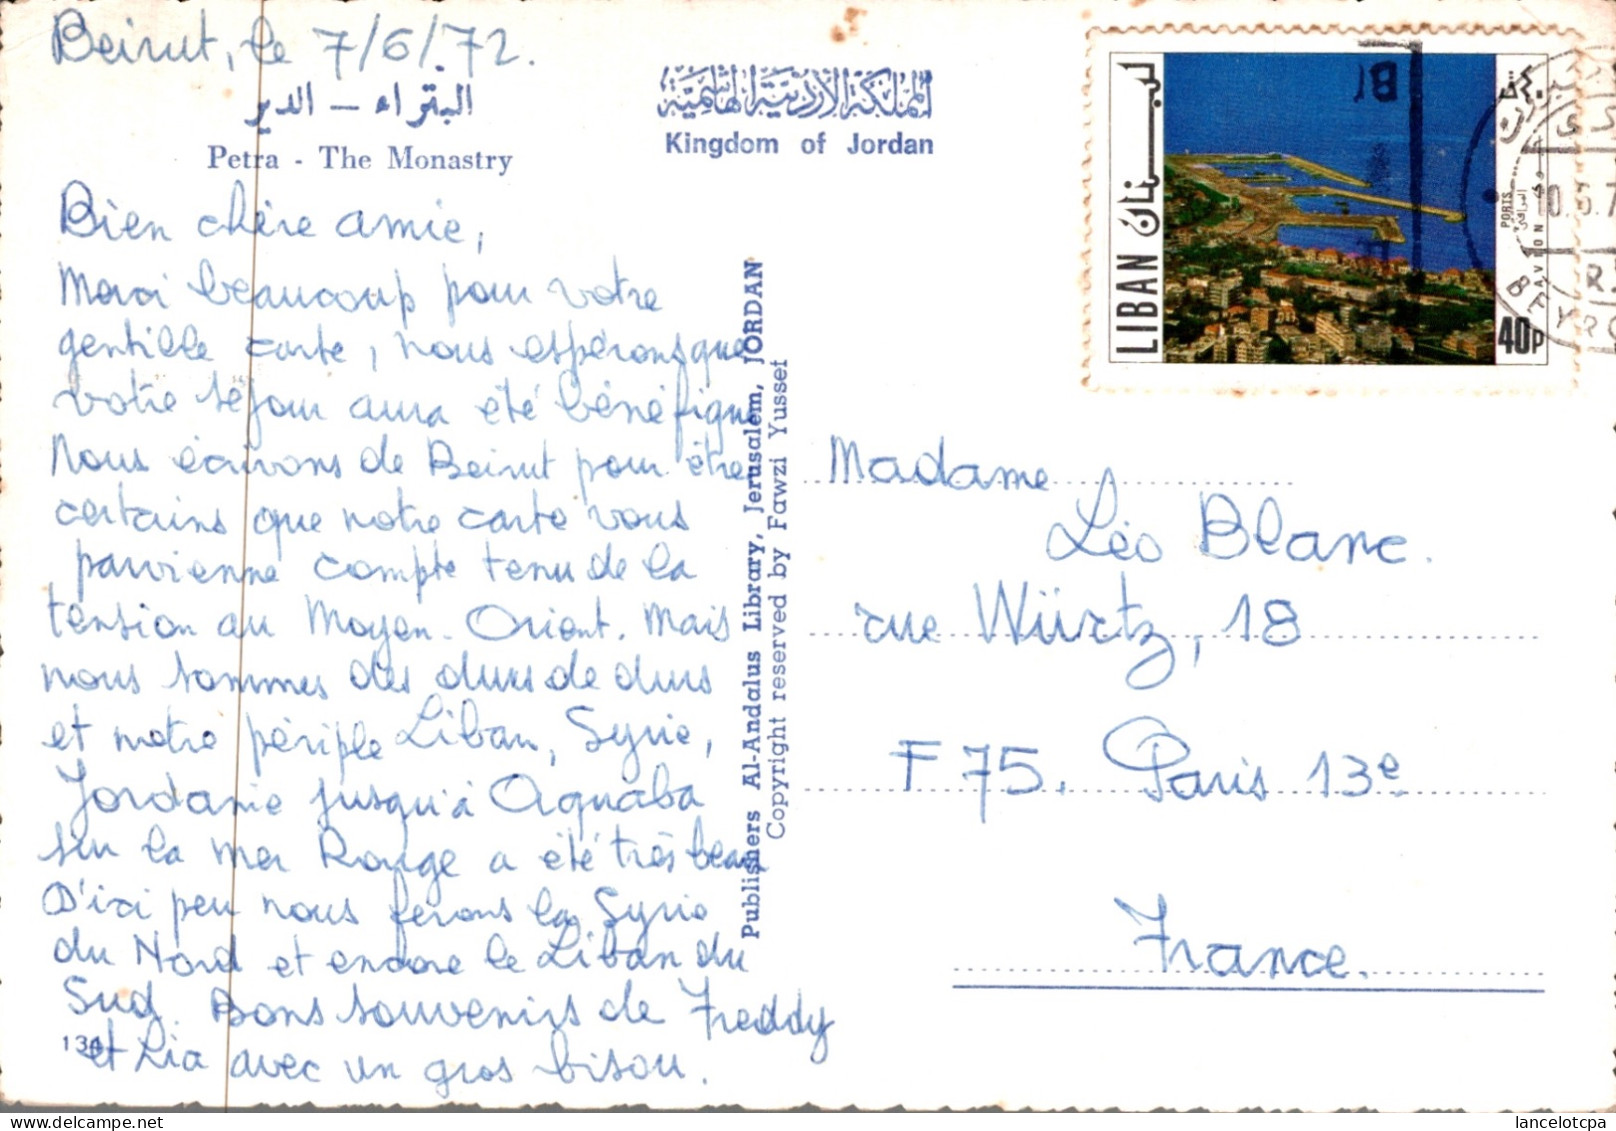 Beirut, le 7/6/.72.
البتراء – الدير
Petra - The Monastry
المملكة الأردنية الهاشمية
Kingdom of Jordan
Bien chère amie,
Merci beaucoup pour votre
gentille carte, nous espérons que
votre séjour aura été bénéfique
Nous écrivons de Beirut pour être
certains que notre carte vous
parvienne compte tenu de la
tension au Moyen-Orient. Mais
nous sommes des durs de durs
et notre périple Liban, Syrie,
Jordanie jusqu'à Aquaba
sur la mer Rouge a été très beau
D'ici peu nous ferons la Syrie
du Nord et encore le Liban du
Sud. Bons souvenirs de Freddy
et Lia avec un gros bisou.
134
Publishers Al-Andalus Library, Jerusalem, JORDAN
Copyright reserved by Fawzi Yussef
لبنان
LIBAN
PORTS
المرافئ
AVION
40P
10.6.7
BEYRO
Madame
Léo Blanc.
rue Würtz, 18
F 75. Paris 13e
France.
lancelotcpa